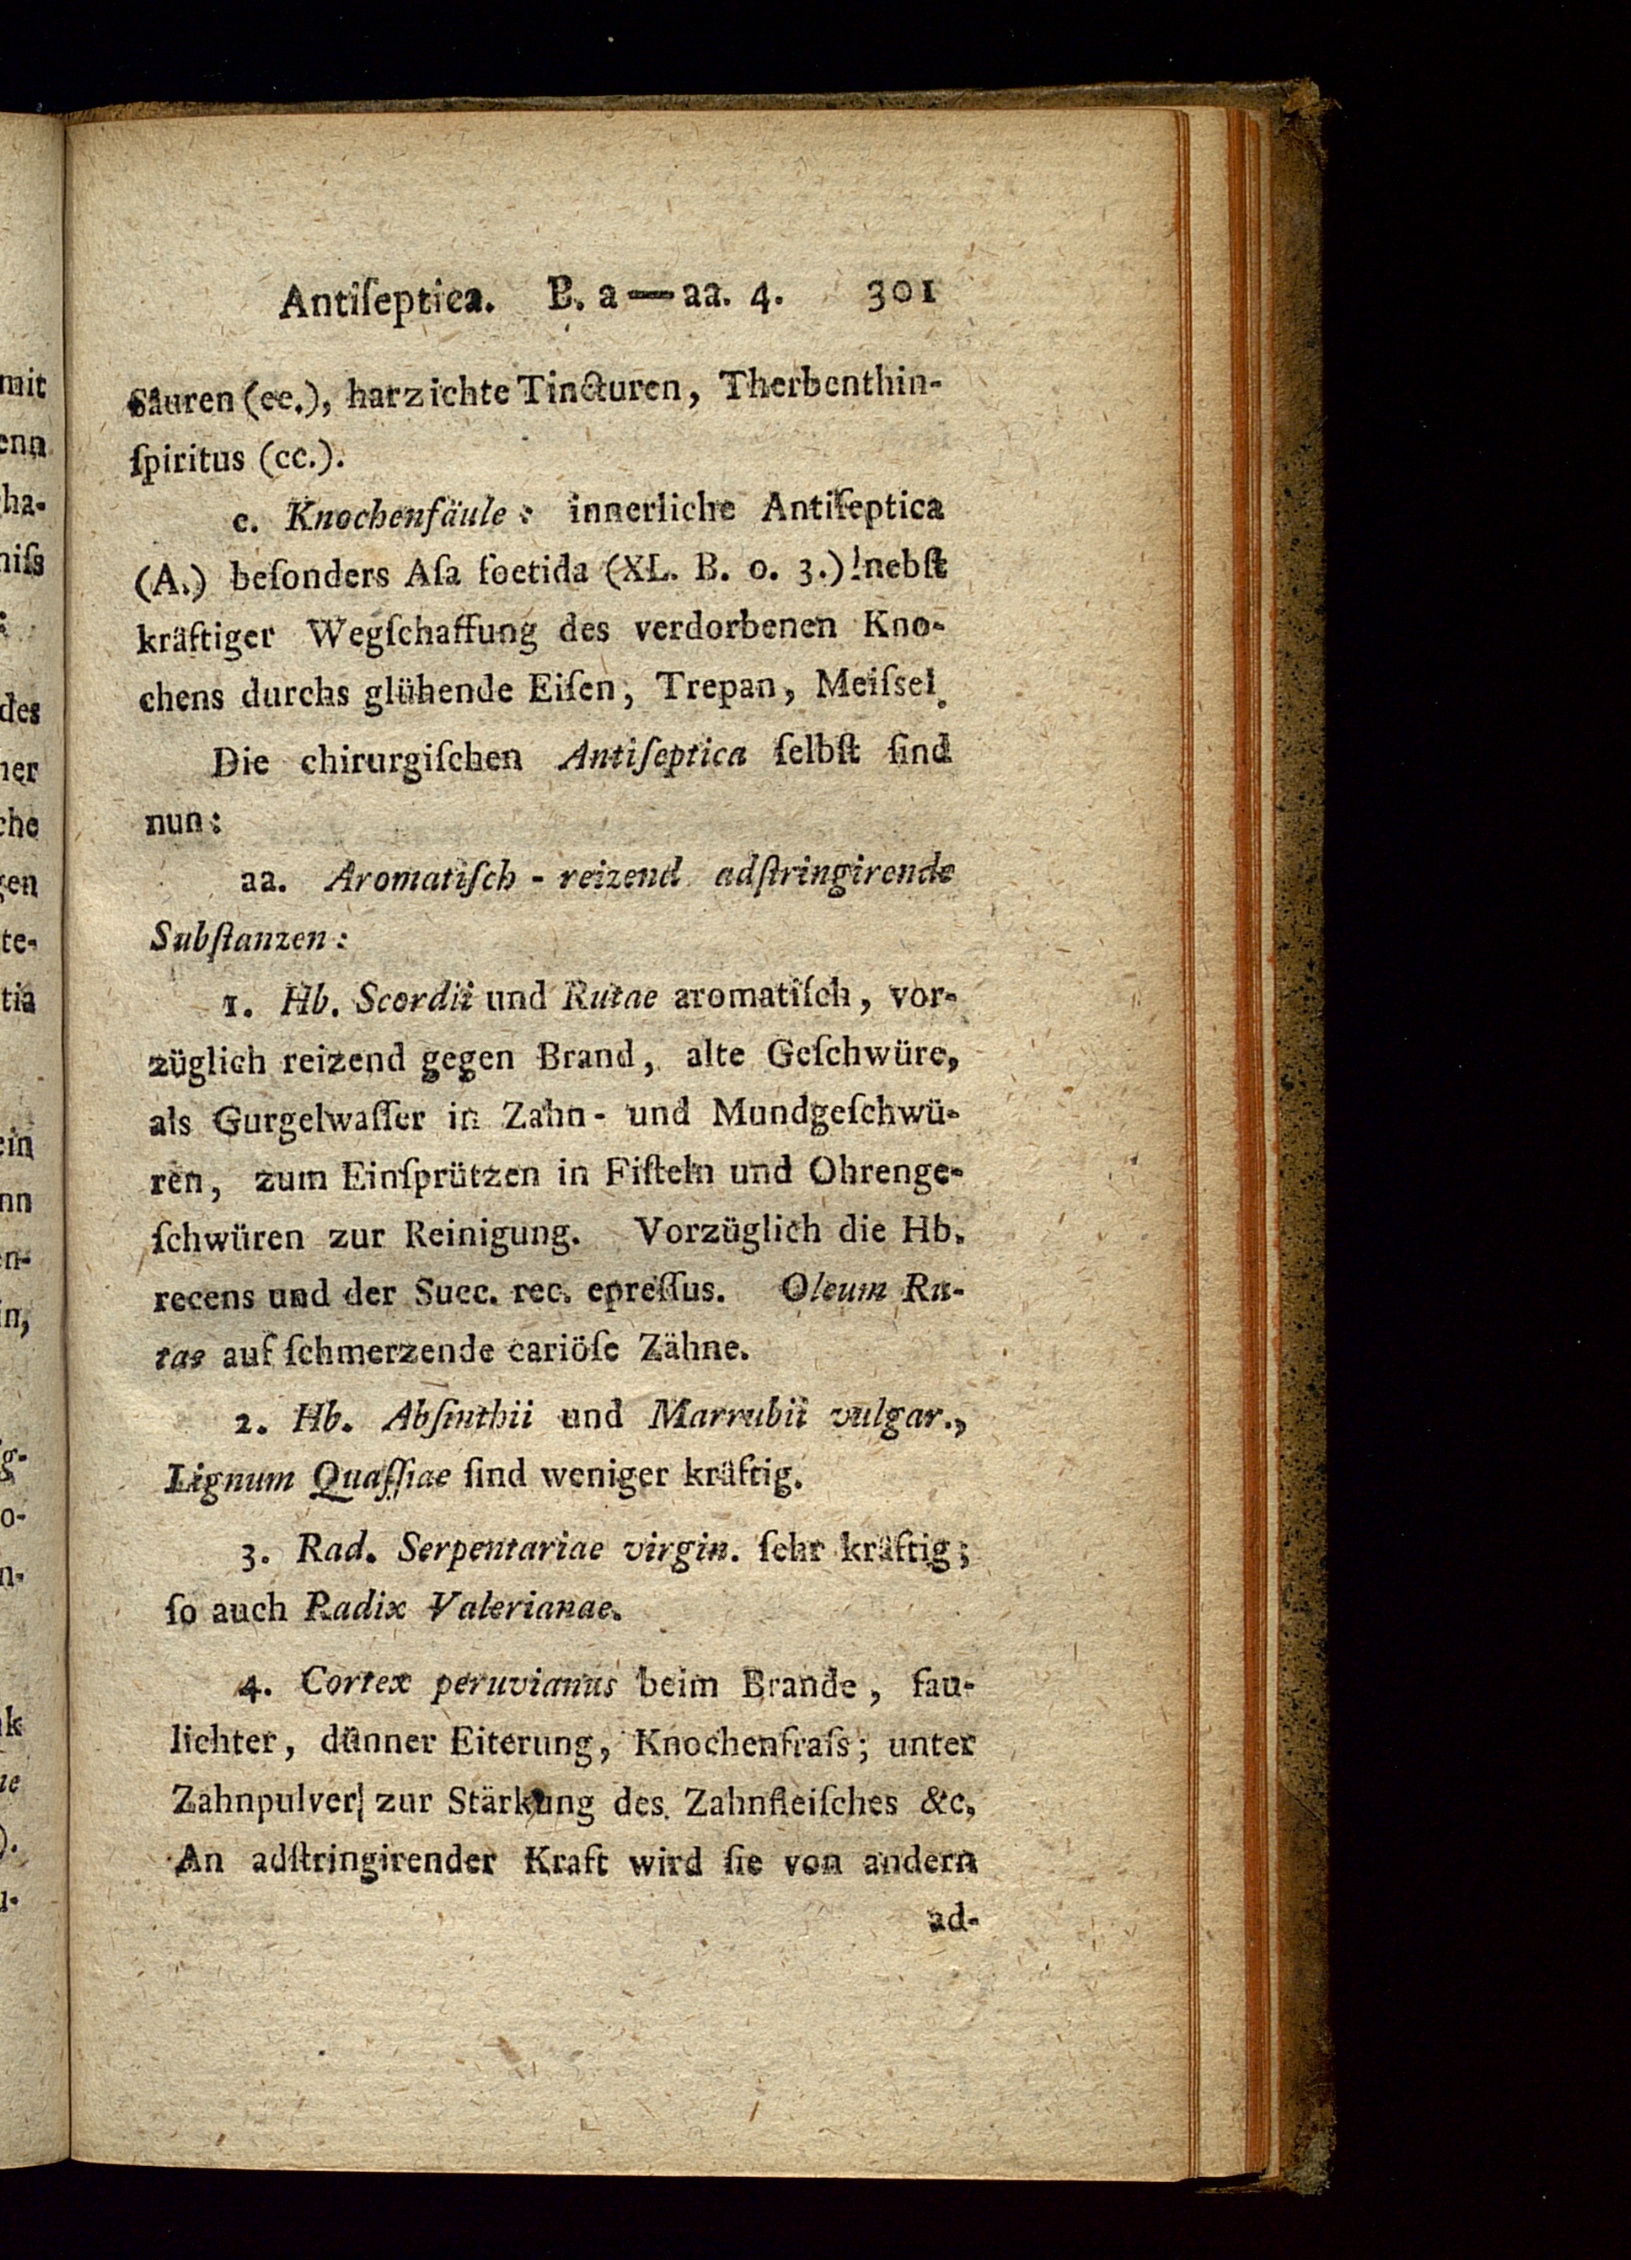 Antiſeptica. B. a — aa. 4. 301
Säuren (ee.), harzichte Tincturen, Therbenthin-
ſpiritus (cc.).
c. Knochenfäule: innerliche Antiſeptica
(A.) beſonders Aſa foetida (XL. B. o. 3.) nebſt
kräftiger Wegſchaffung des verdorbenen Kno-
chens durchs glühende Eiſen, Trepan, Meiſsel.
Die chirurgiſchen Antiſeptica ſelbſt ſind
nun:
aa. Aromatiſch - reizend adſtringirende
Subſtanzen:
1. Hb. Scordii und Rutae aromatiſch, vor-
züglich reizend gegen Brand, alte Geſchwüre,
als Gurgelwaſſer in Zahn- und Mundgeſchwü-
ren, zum Einſprützen in Fiſteln und Ohrenge-
ſchwüren zur Reinigung. Vorzüglich die Hb.
recens und der Succ. rec. epreſſus. Oleum Ru-
tae auf ſchmerzende cariöſe Zähne.
2. Hb. Abſinthii und Marrubii vulgar.,
Lignum Quaſſiae ſind weniger kräftig.
3. Rad. Serpentariae virgin. ſehr kräftig;
ſo auch Radix Valerianae.
4. Cortex peruvianus beim Brande, fau-
lichter, dünner Eiterung, Knochenfraſs; unter
Zahnpulver zur Stärkung des Zahnfleiſches &c.
An adſtringirender Kraft wird ſie von andern
ad-